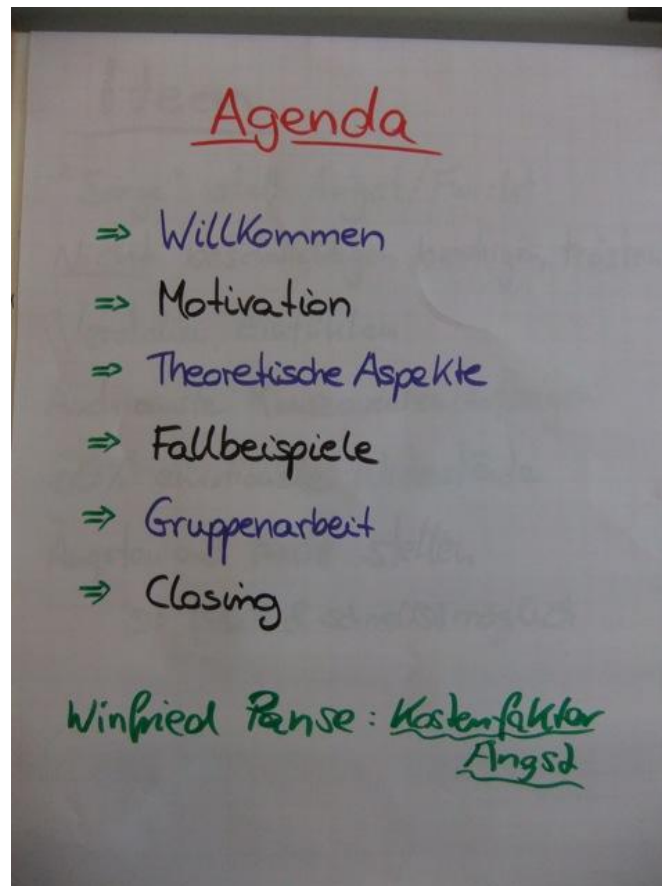 Agenda
⇒ Willkommen
⇒ Motivation
⇒ Theoretische Aspekte
⇒ Fallbeispiele
⇒ Gruppenarbeit
⇒ Closing
Winfried Panse: Kostenfaktor
Angst